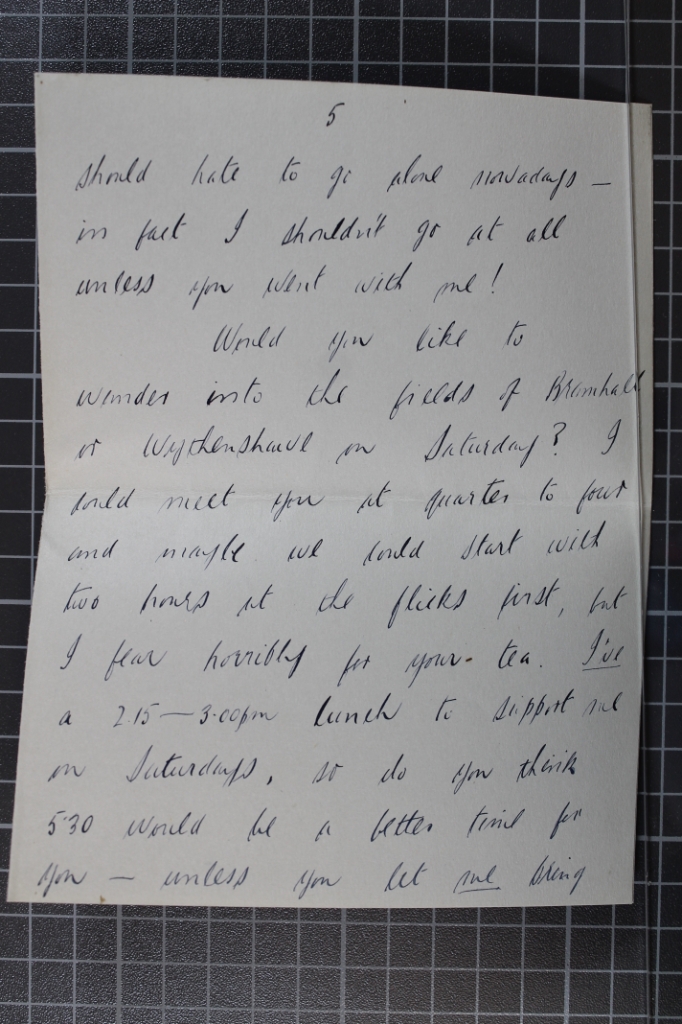 5
should hate to go alone nowadays —
in fact I shouldn't go at all
unless you went with me!
Would you like to
wander into the fields of Bramhall
or Wythenshawe on Saturday? I
could meet you at quarter to four
and maybe we could start with
two hours at the flicks first, but
I fear horribly for your tea. I've
a 2.15 — 3.00pm lunch to support me
on Saturdays, so do you think
5.30 would be a better time for
you — unless you let me bring